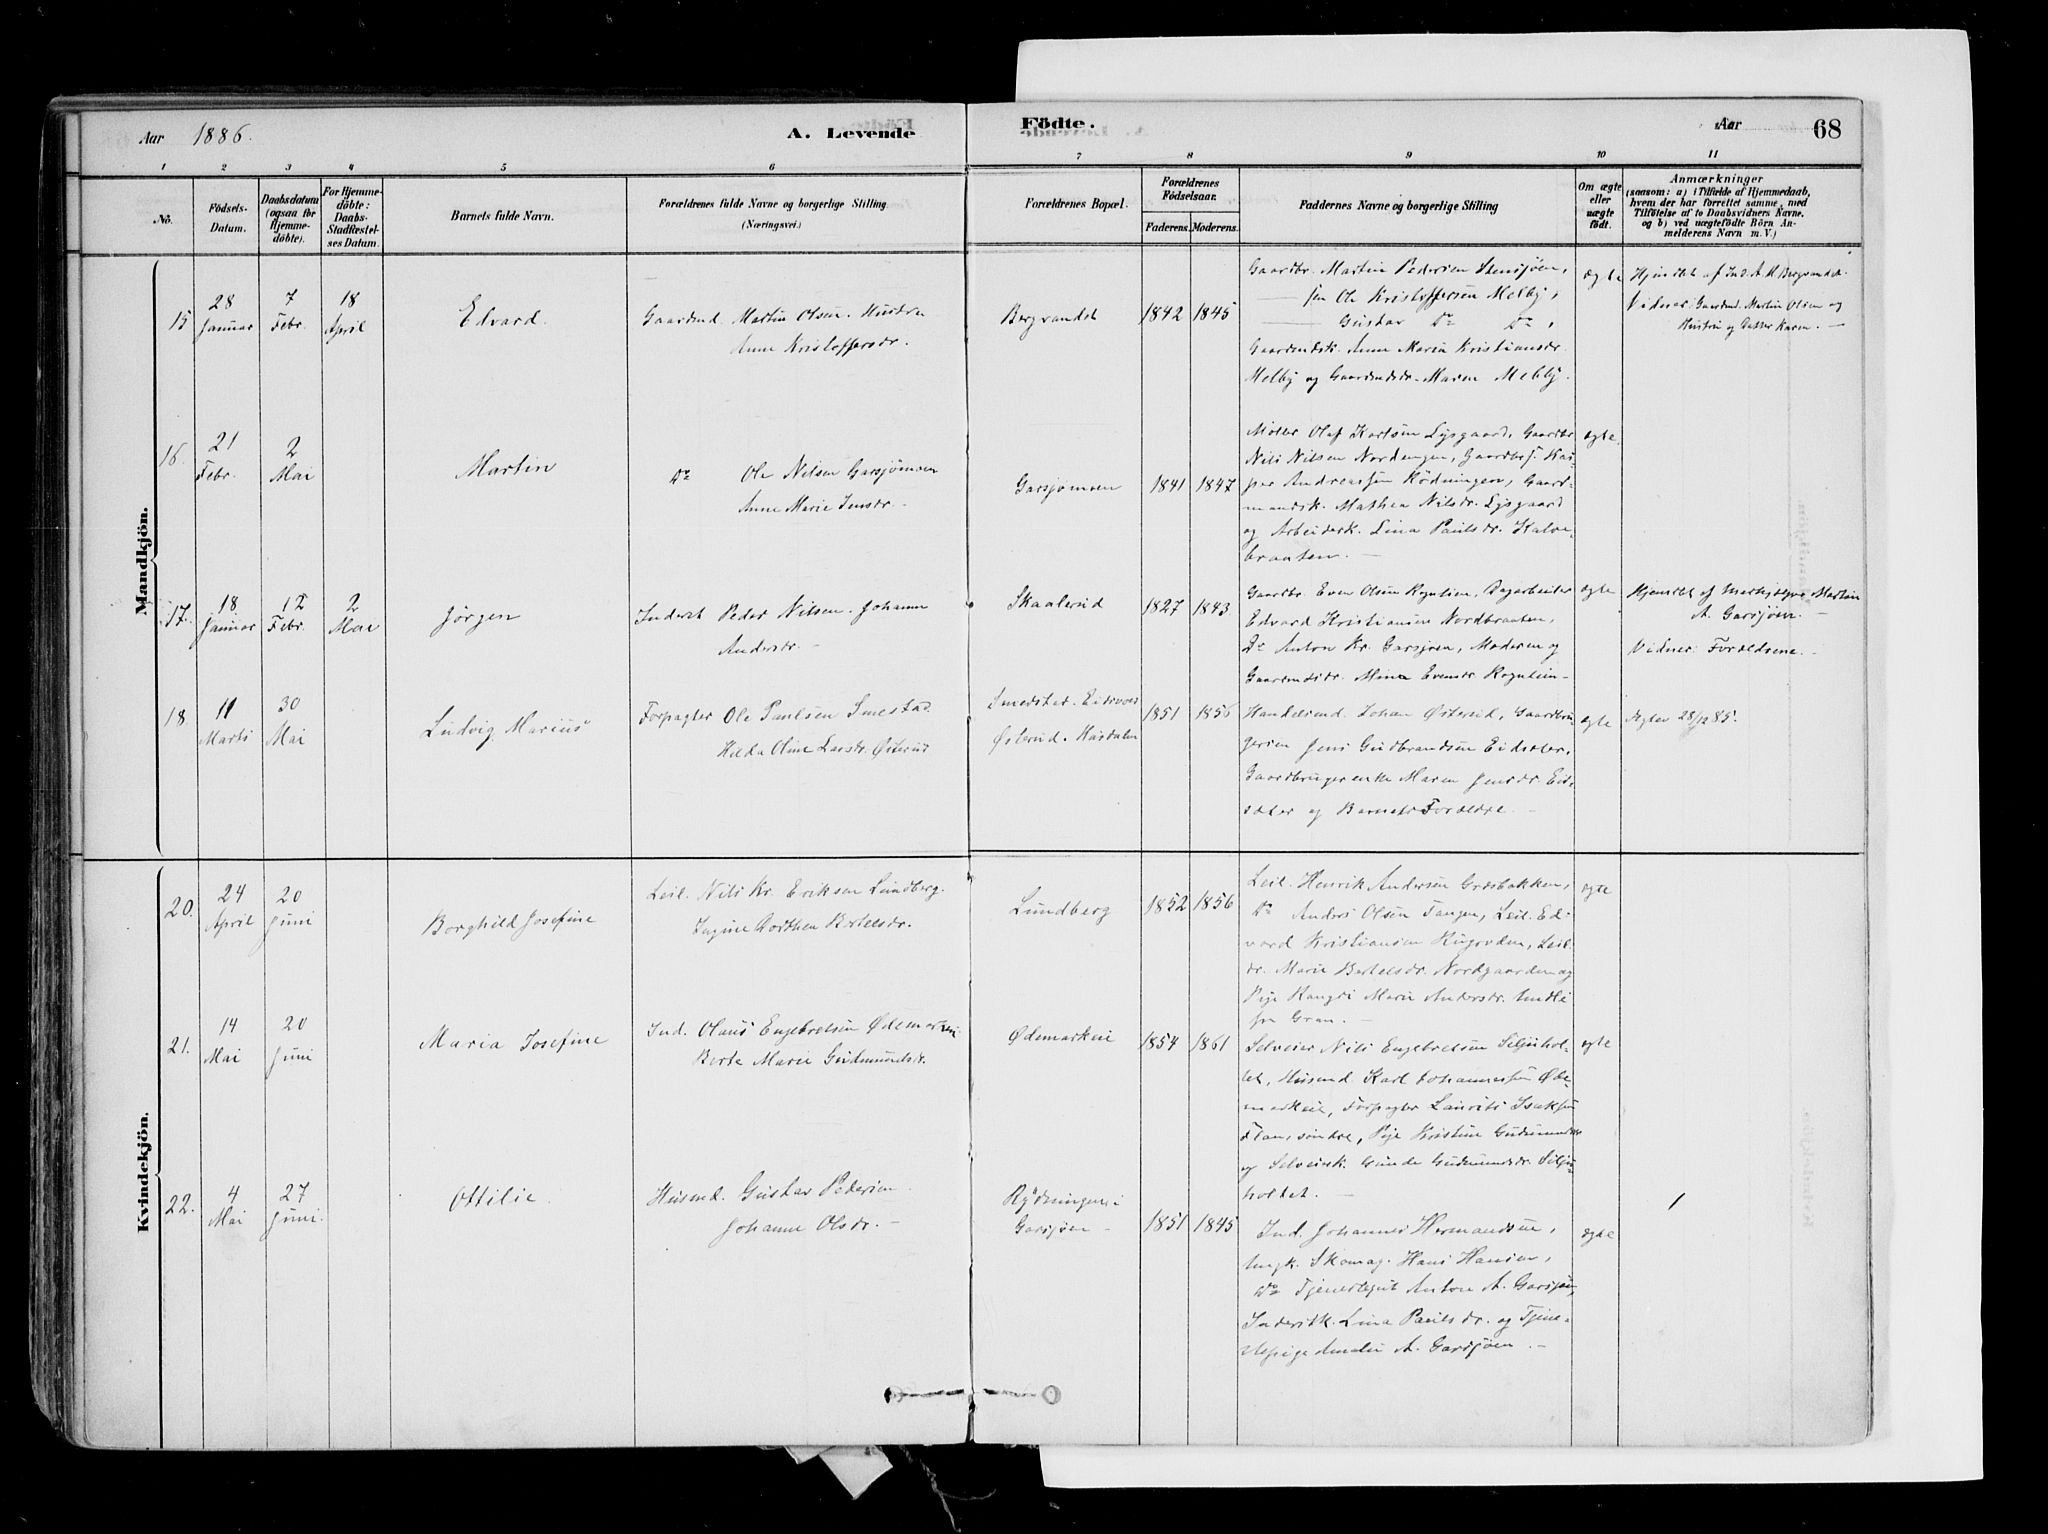 Aar 1886. A. Levende Födte. Aar 68
1 2 3 4 5 6 7 8 9 10 11
No.
Födsels-
Datum.
Daabsdatum
(ogsaa for
Hjemme-
döbte).
For Hjemme-
döbte:
Daabs-
Stadfæstel-
ses Datum.
Barnets fulde Navn.
Forældrenes fulde Navne og borgerlige Stilling
(Næringsvei.)
Forældrenes Bopæl.
Forældrenes
Födselsaar.
Faderens. Moderens.
Faddernes Navne og borgerlige Stilling
Om ægte
eller
uægte
födt.
Anmærkninger
(saasom: a) i Tilfælde af Hjemmedaab,
hvem der har forrettet samme, med
Tilföielse af to Daabsvidners Navne.
og b) ved uægtefödte Börn An-
melderens Navn m. V.)
Mandkjön.
15
28
Januar
7
Febr.
18
April
Edvard.
Gaardmd. Martin Olsen. Hustru
Anne Kristoffersdr.
Bergvandet
1842 1845
Gaardbr. Martin Pedersen Stensjøen,
— søn Ole Kristoffersen Melby,
— Gustav Do Do,
Gaardmdsk. Anne Maria Kristiansdr.
Melby og Gaardmdsdr. Maren Melby.
ægte
Hjmdbt af Ind. A. M. Bergvandet.
Vidner: Gaardmd. Martin Olsen og
Hustru og Datter Karen. —
16.
21
Febr.
2
Mai
Martin
Do Ole Nilsen Garsjømoen
Anne Marie Jensdr. -
Garsjømoen
1841 1847
Møller Olaf Karlsen Lysgaard, Gaardbr
Nils Nilsen Nordengen, Gaardbrs. Kas-
per Andreassen Rödningen, Gaard-
mandsk. Mathea Nilsdr. Lysgaard
og Arbeiderk. Lina Paulsdr. Kalve-
braaten. —
ægte
17.
18
Januar
12
Febr.
2
Mai
Jørgen
Inderst Peder Nilsen. Johanne
Andersdr. -
Skaalerud
1827 1843
Gaardbr. Even Olsen Rognlien, Dagarbeider
Edvard Kristiansen Nordbraaten,
Do Anton Kr. Garsjøen, Moderen og
Gaardmdsdr. Mina Evensdr. Rognlien-
ægte
Hjemdbt af Martin
A. Garsjøen. —
Vidner: Forældrene. -
18
11
Marts
30
Mai
Ludvig Marius
Forpagter Ole Paulsen Smestad.
Hilda Oline Larsdr. Østerud
Smedstad. Eidsvold
Østerud. Hurdalen
1851 1856
Handelsmd. Johan Østerud, Gaardbru-
gersøn Jens Gudbrandsen Eidsæter,
Gaardbrugerenke Maren Jensdr. Eid-
sæter og Barnets Forældre. -
ægte
Ægtev 28/12 85.
Kvindekjön.
20.
24
April
20
Juni
Borghild Josefine
Leil. Nils Kr. Eriksen Lundberg.
Ingine Dorthea Bertelsdr.
Lundberg
1852 1856
Leil. Henrik Andersen Græsbakken,
Do Anders Olsen Tangen, Leil. Ed-
vard Kristiansen Hugovden, Leil.
dr. Marie Bertelsdr. Nordgaarden og
Pige Marie Andersdr.
fra Gran. —
ægte
21.
14
Mai
20
Juni
Maria Josefine
Ind. Olaus Engebretsen Ødemarken.
Berte Marie Gudmundsdr.
Ødemarkeie
1854 1861
Selveier Nils Engebretsen Seljehol-
tet, Husmd. Karl Johannessen Øde-
markeie, Forpagter Laurits Isaksen
Flan, søndre, Pige Kristine Gudmundsdr
og Selveierk. Gunda Gudmundsdr. Selje-
holtet. —
ægte
22.
4
Mai
27
Juni.
Ottilie
Husmd. Gustav Pedersen
Johanne Olsdr. -
Rydningen i
Garsjøen -
1851 1845
Ind. Johannes Hermandsen,
Ungk. Skomag. Hans Hansen,
Do Tjenestegut Anton A. Garsjøen,
Inderstk. Lina Paulsdr. og Tjene-
stepige Amalie A. Garsjøen. -
ægte